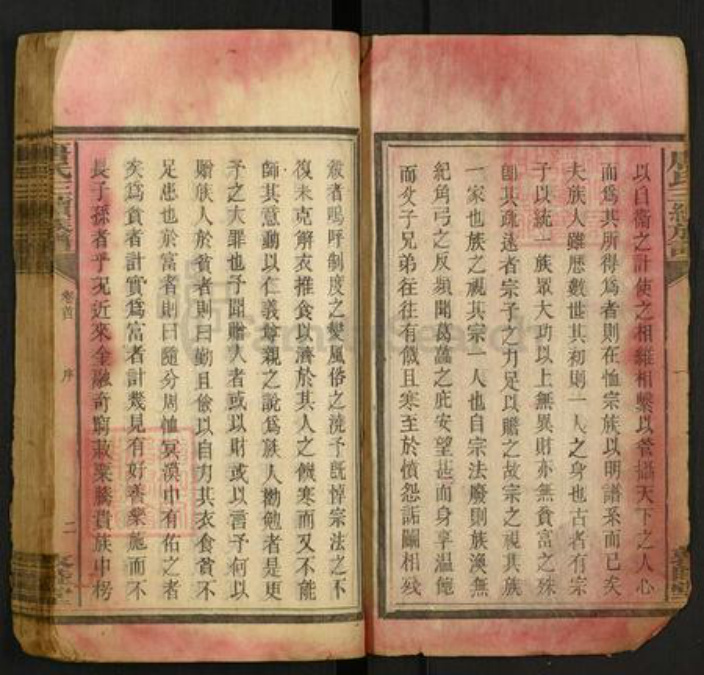 以自衛之計使之相維相繫以管攝天下之人心
而爲其所得爲者則在恤宗族以明譜系而已矣
夫族人雖歷數世其初則一人之身也古者有宗
子以統一族眾大功以上無異財亦無貧富之殊
卽其疏遠者宗子之力足以贍之故宗之視其族
一家也族之視其宗一人也自宗法廢則族渙無
紀角弓之反頻聞葛藟之庇安望甚而身享温飽
而父子兄弟往往有饑且寒至於憤怨詬鬭相殘
者嗚呼制度之變風俗之澆予旣悼宗法之不
復未克解衣推食以濟於其人之饑寒而又不能
師其意動以仁義尊親之說爲族人勸勉者是更
予之大罪也予聞贈人者或以財或以言予何以
贈族人於貧者則曰勤且儉以自力其衣食貧不
足患也於富者則曰隨分周恤冥漠中有佑之者
矣爲貧者計實爲富者計幾見有好善樂施而不
長子孫者乎況近來金融奇窮菽粟騰貴族中楞
氏三續族譜
卷首
序
二